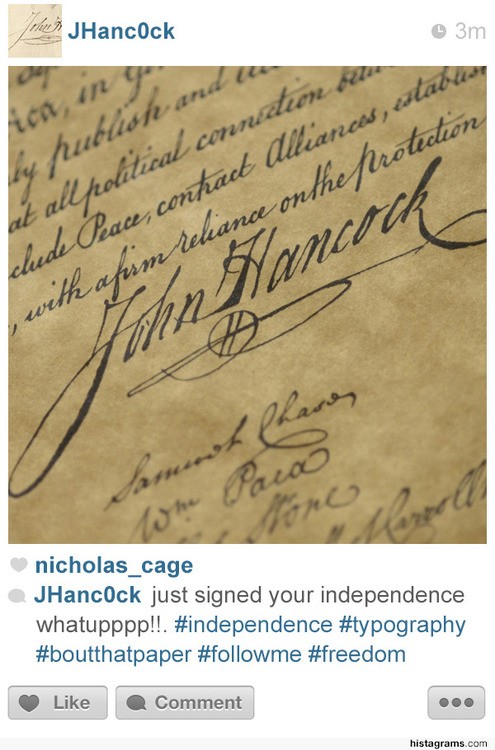 John H
JHanc0ck
3m
in
ly publish and
at all political connection
clude Peace, contract Alliances, establis
, with a firm reliance on the protection
John Hancock
Samuel Chase
Wm Paca
Stone
nicholas_cage
JHanc0ck just signed your independence
whatupppp!!. #independence #typography
#boutthatpaper #followme #freedom
Like
Comment
histagrams.com